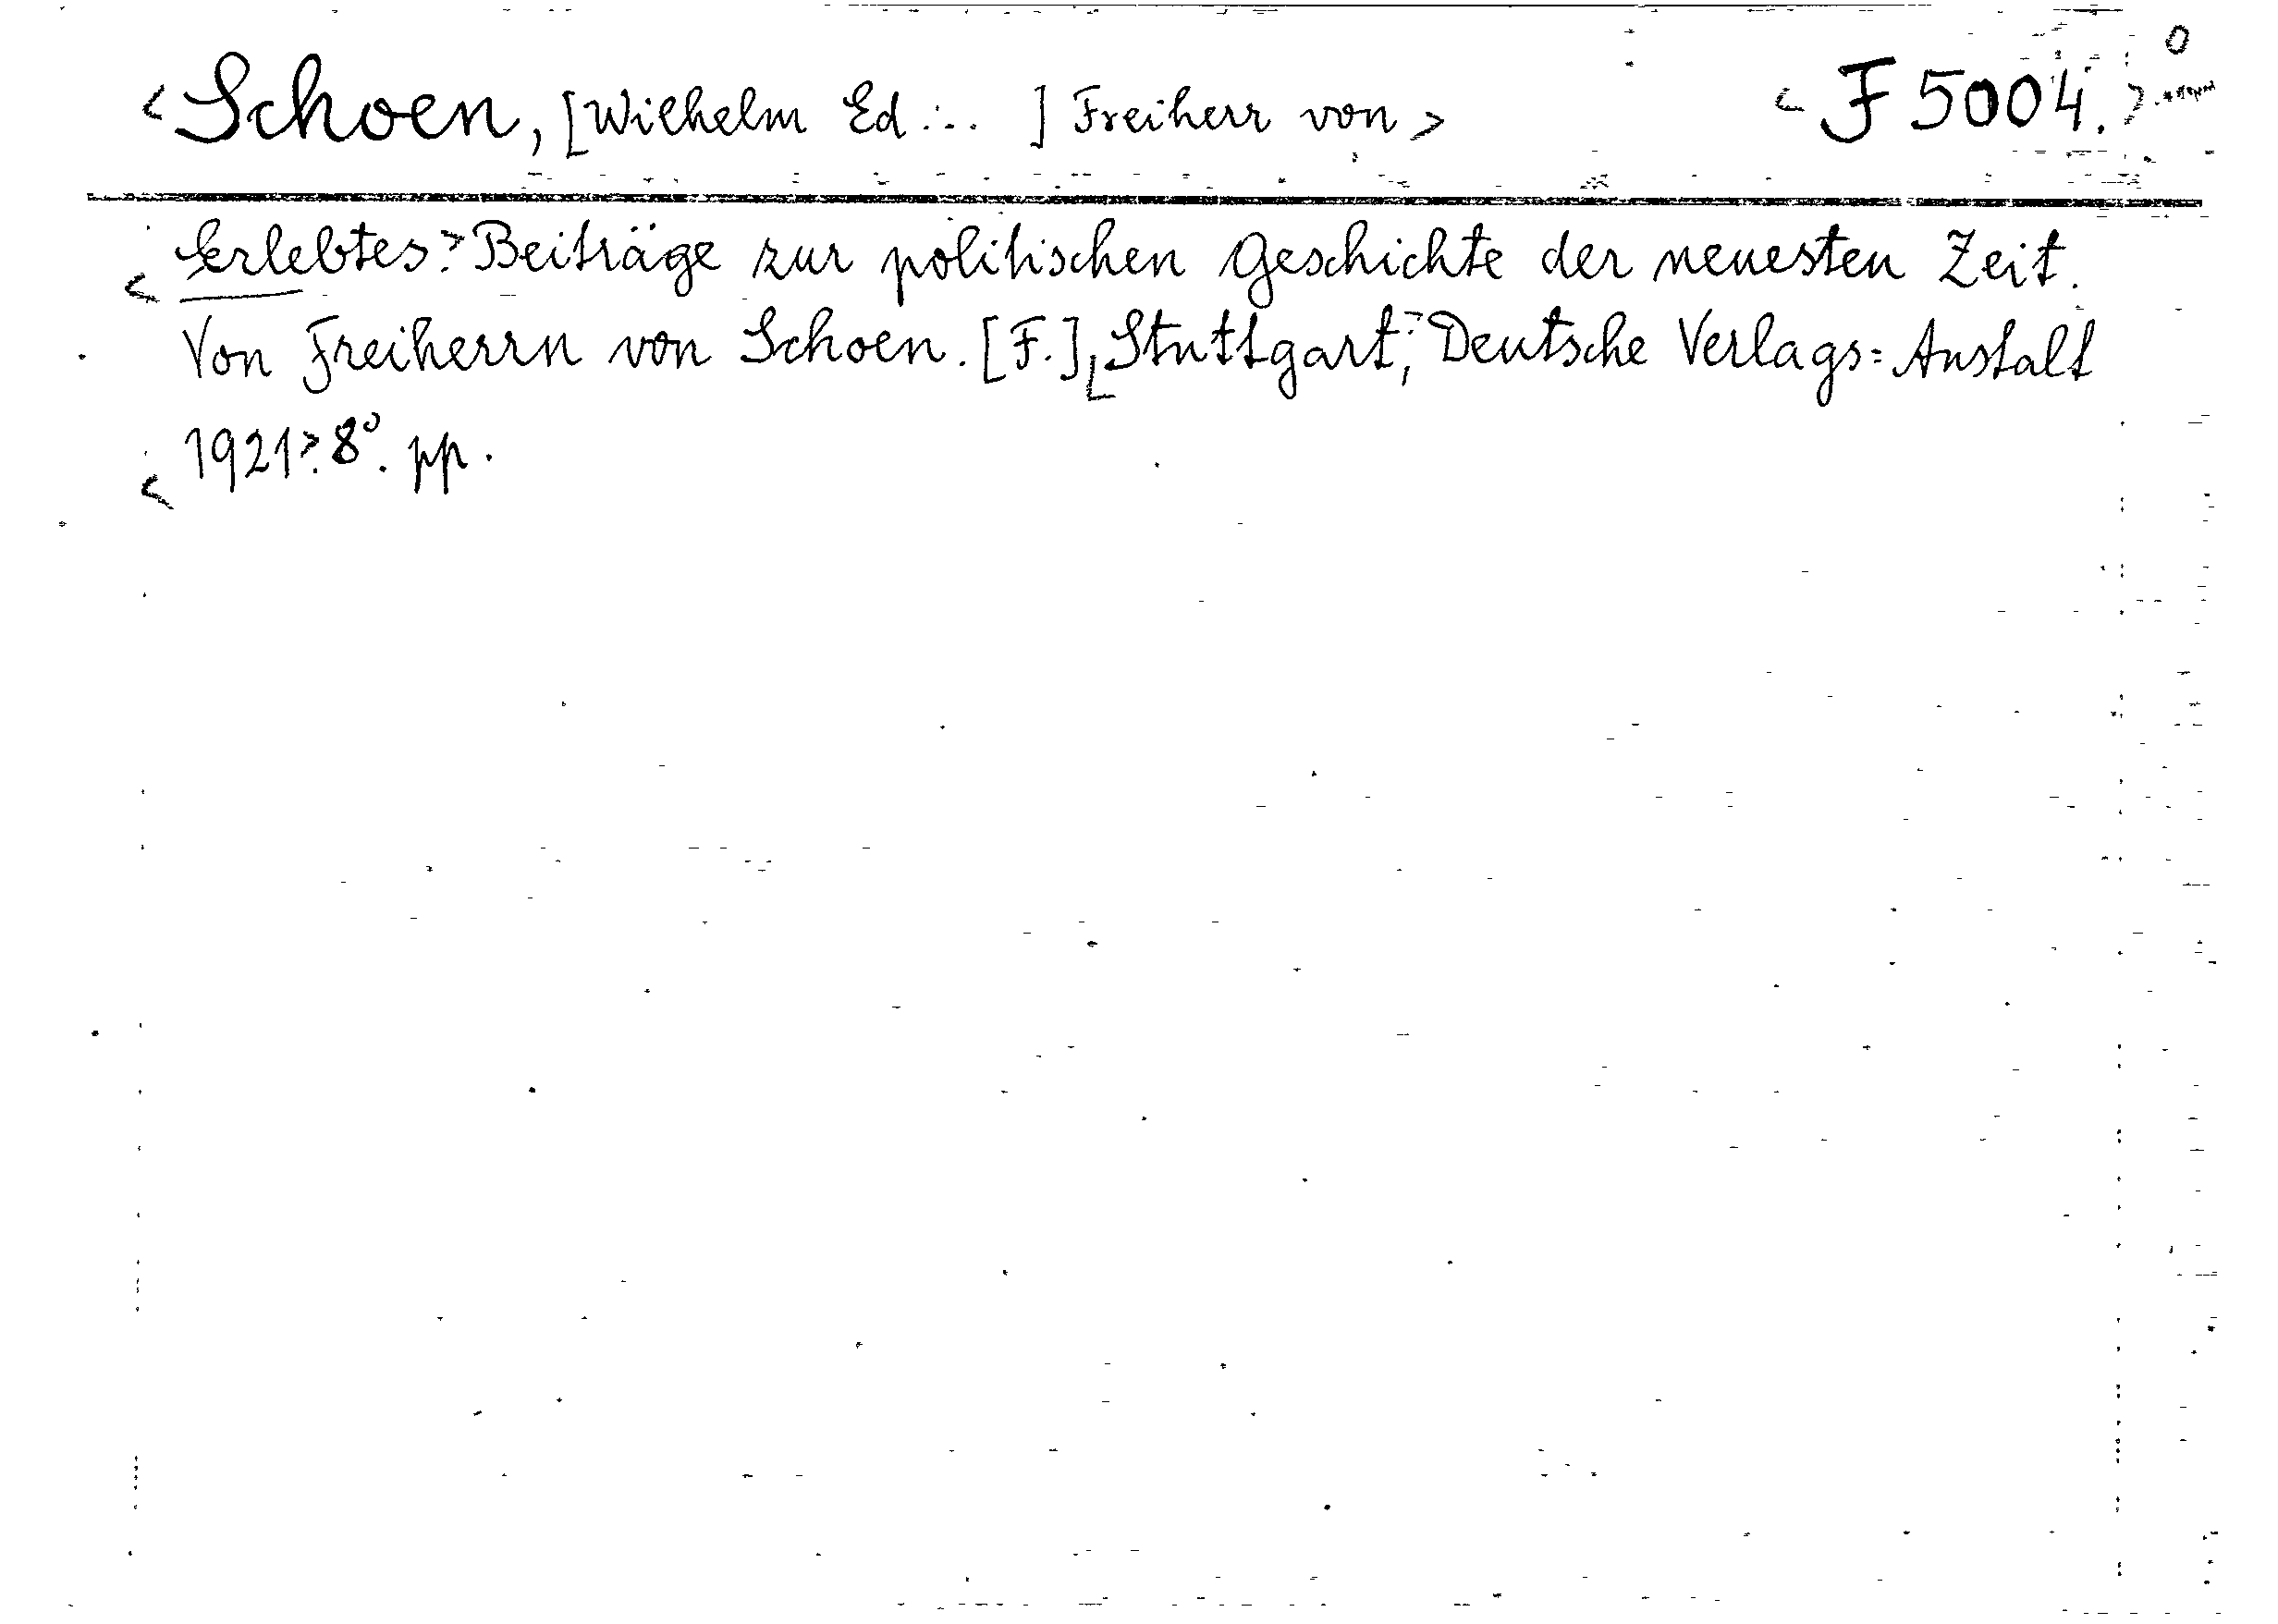 <Schoen, [Wilhelm Ed... ] Freiherr von> <F 5004.>
<Erlebtes.> Beiträge zur politischen Geschichte der neuesten Zeit.
Von Freiherrn von Schoen. [F.] <Stuttgart,> Deutsche Verlags=Anstalt
<1921>. 8°. pp.